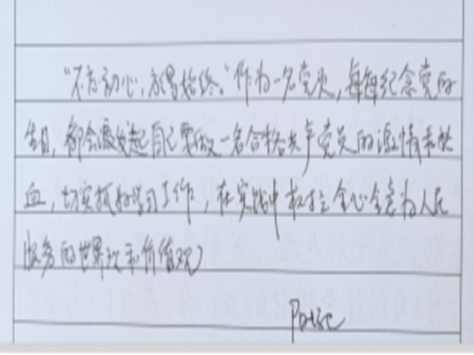 “不忘初心,方得始终。”作为一名党员,每每纪念党的
生日,都会激发起自己要做一名合格共产党员的激情和热
血,切实抓好学习工作,在实践中树立全心全意为人民
服务的世界观和价值观